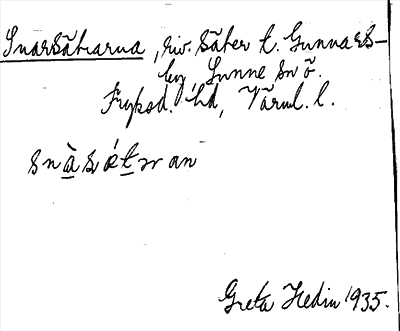 Snarsätrarna, riv. säter t. Gunnars-
by, Sunne sn ö.
Fryksd. hd, Värml. l.
Greta Hedin 1935.